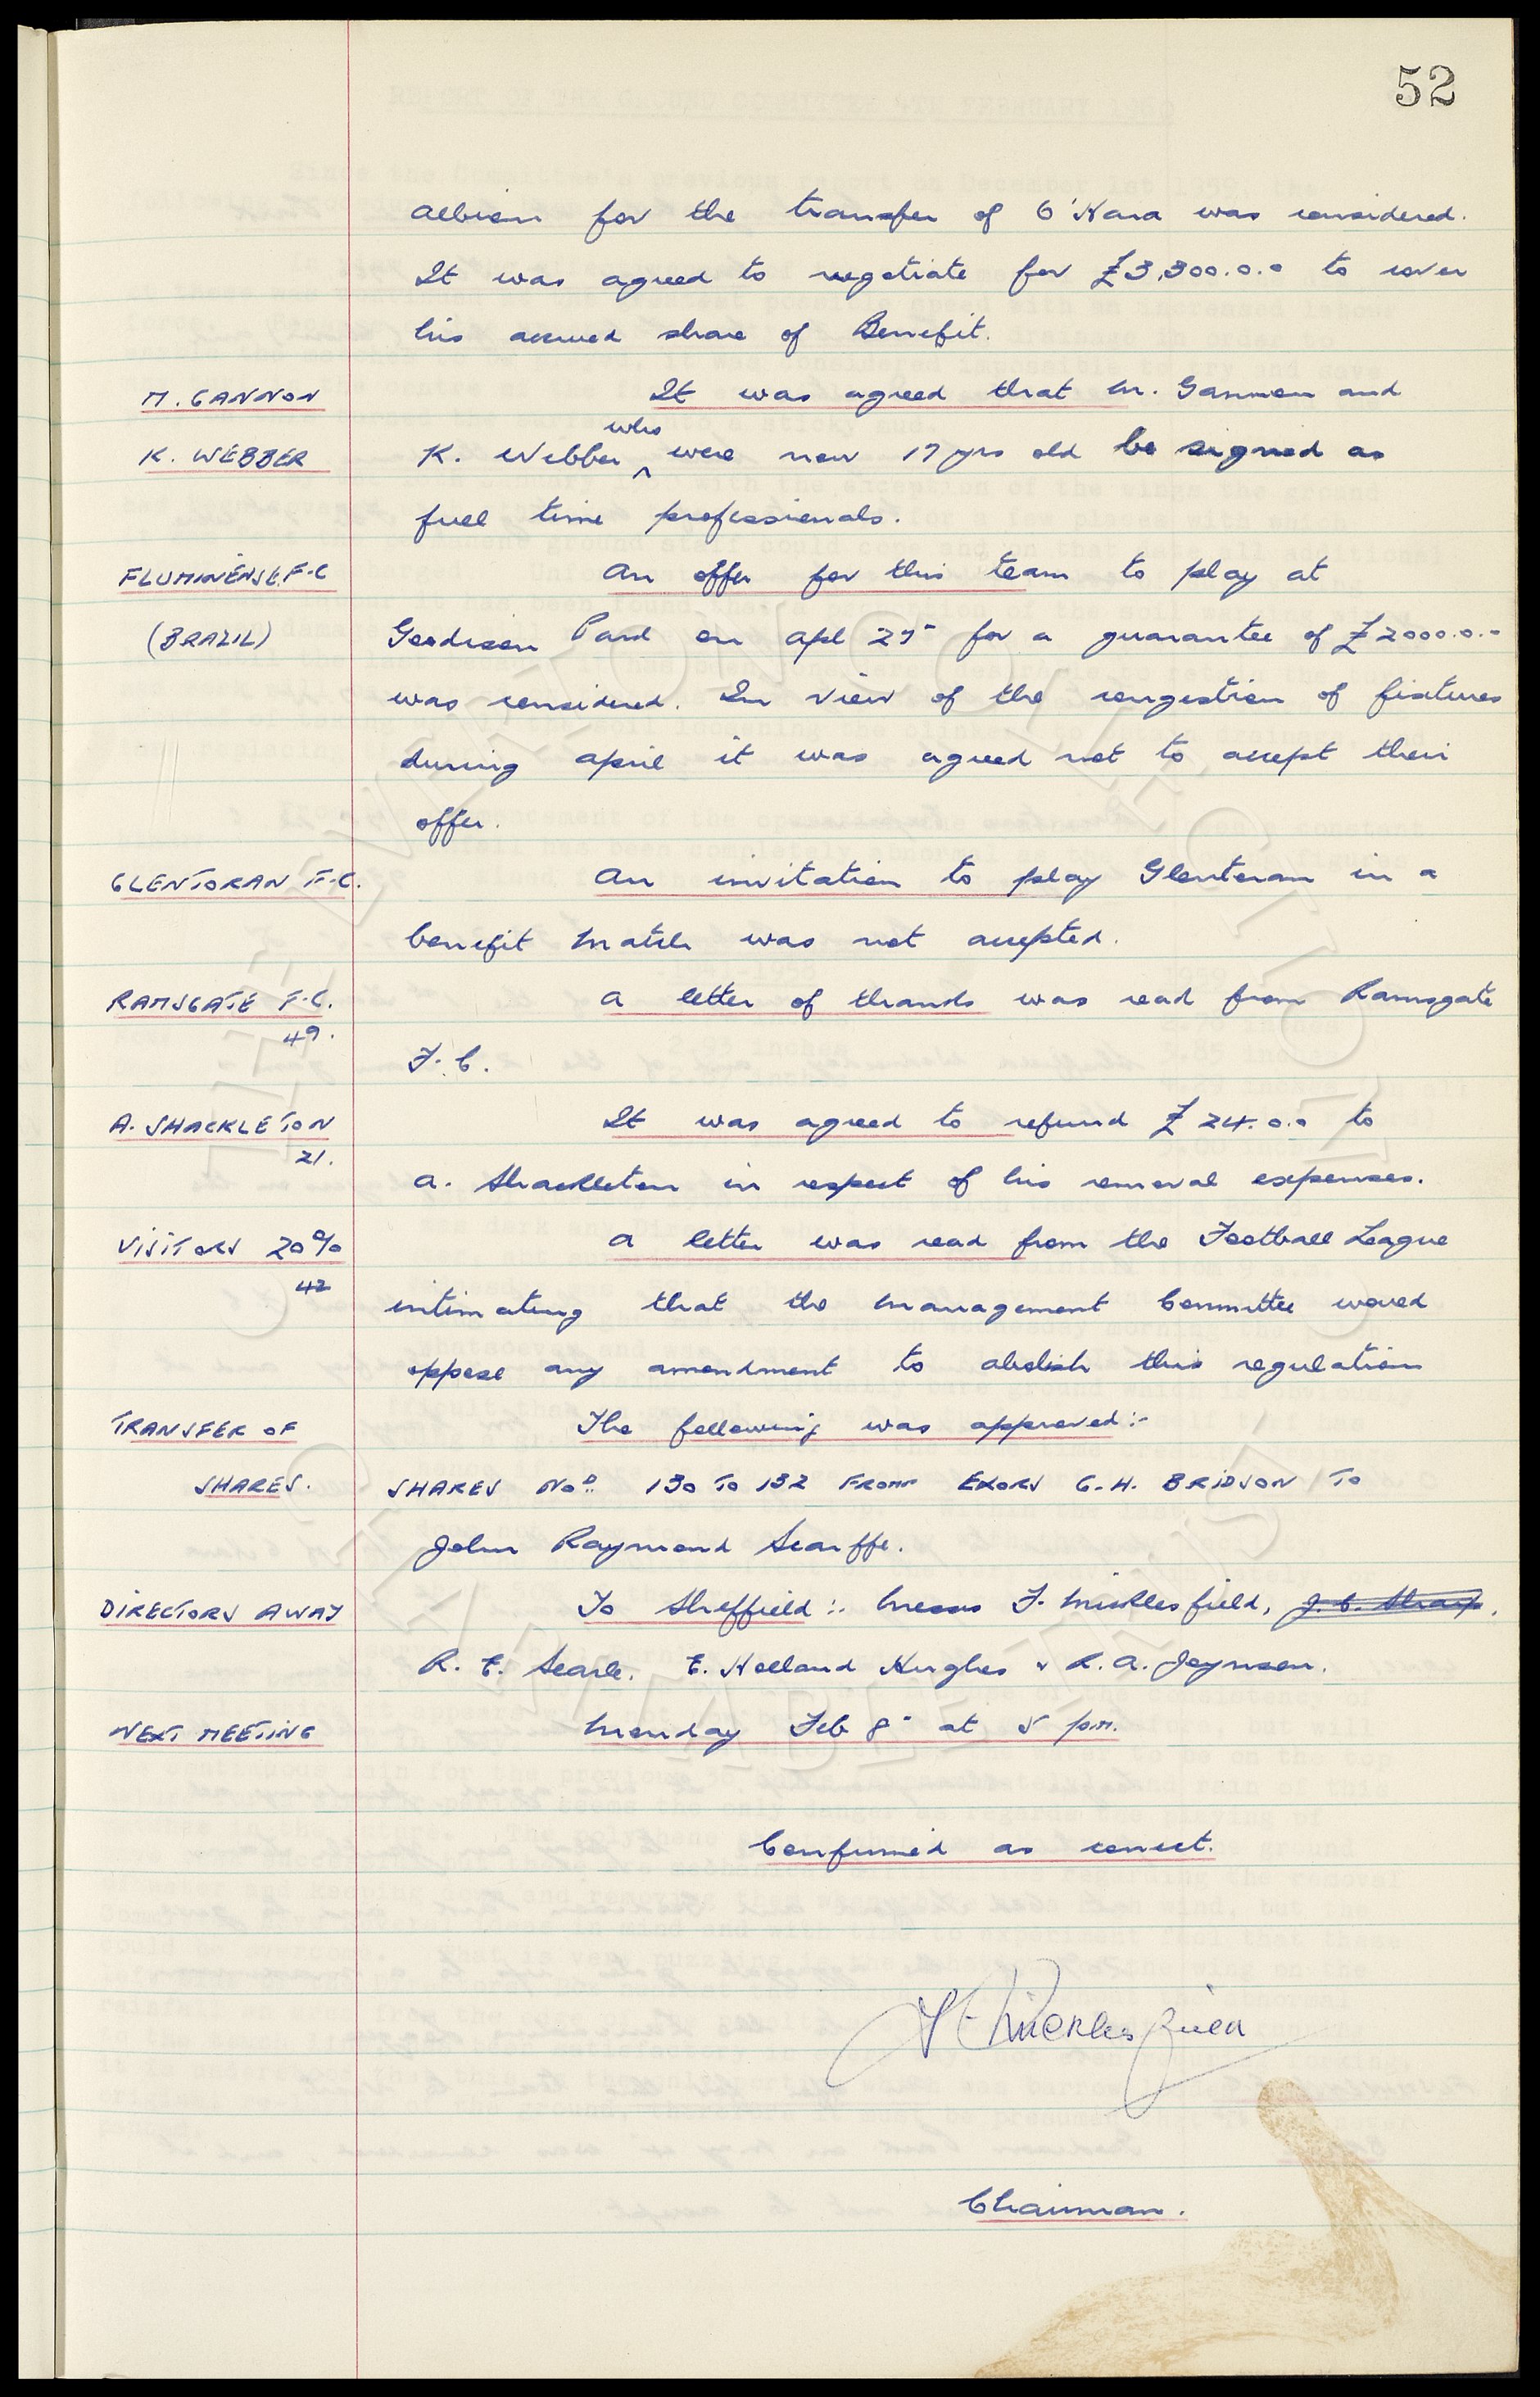 52
Albion for the transfer of O'Hara was considered.
It was agreed to negotiate for £3,300.0.0 to cover
his accrued share of Benefit.
M. GANNON It was agreed that M. Gannon and
K. WEBBER K. Webber who were now 17 yrs old be signed as
full time professionals.
FLUMINENSE. F.C An offer for this team to play at
(BRAZIL) Goodison Park on Apl 25 for a guarantee of £2000.0.0
was considered. In view of the congestion of fixtures
during April it was agreed not to accept their
offer.
GLENTORAN F.C. An invitation to play Glentoran in a
benefit match was not accepted.
RAMSGATE F.C. A letter of thanks was read from Ramsgate
49.
F.C.
A. SHACKLETON It was agreed to refund £24.0.0 to
21.
A. Shackleton in respect of his removal expenses.
VISITORS 20% A letter was read from the Football League
42
intimating that the Management Committee would
oppose any amendment to abolish this regulation
TRANSFER OF The following was approved:-
SHARES. SHARES Nos. 130 TO 132 FROM EXORS G.H. BRIDSON TO
John Raymond Scarffe.
DIRECTORS AWAY To Sheffield:- Messrs F. Micklesfield, J.C. Sharp,
R.E. Searle. E. Holland Hughes & R.A. Joynson.
NEXT MEETING Monday Feb 8 at 5 p.m.
Confirmed as correct.
F Micklesfield
Chairman.